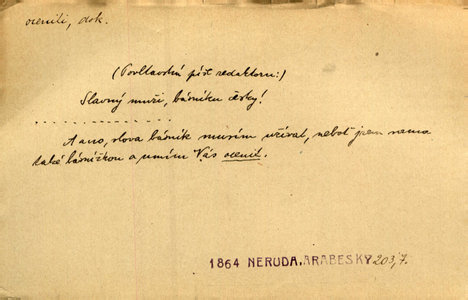 ocenili, dok.
(Povltavská píše redaktoru:)
Slavný muži, básníku český!
. . . . . . . . . . . . . .
A ano, slova básník musím užívat, neboť jsem sama
také básnířkou a umím Vás ocenit.
1864 NERUDA, ARABESKY 203,7.